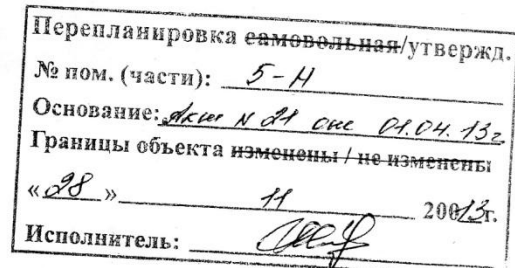 Перепланировка самовольная/утвержд.
№ пом. (части): 5-Н
Основание: Акт N 21 от 01.04.13г
Границы объекта изменены / не изменены
«28» 11 20013г.
Исполнитель: